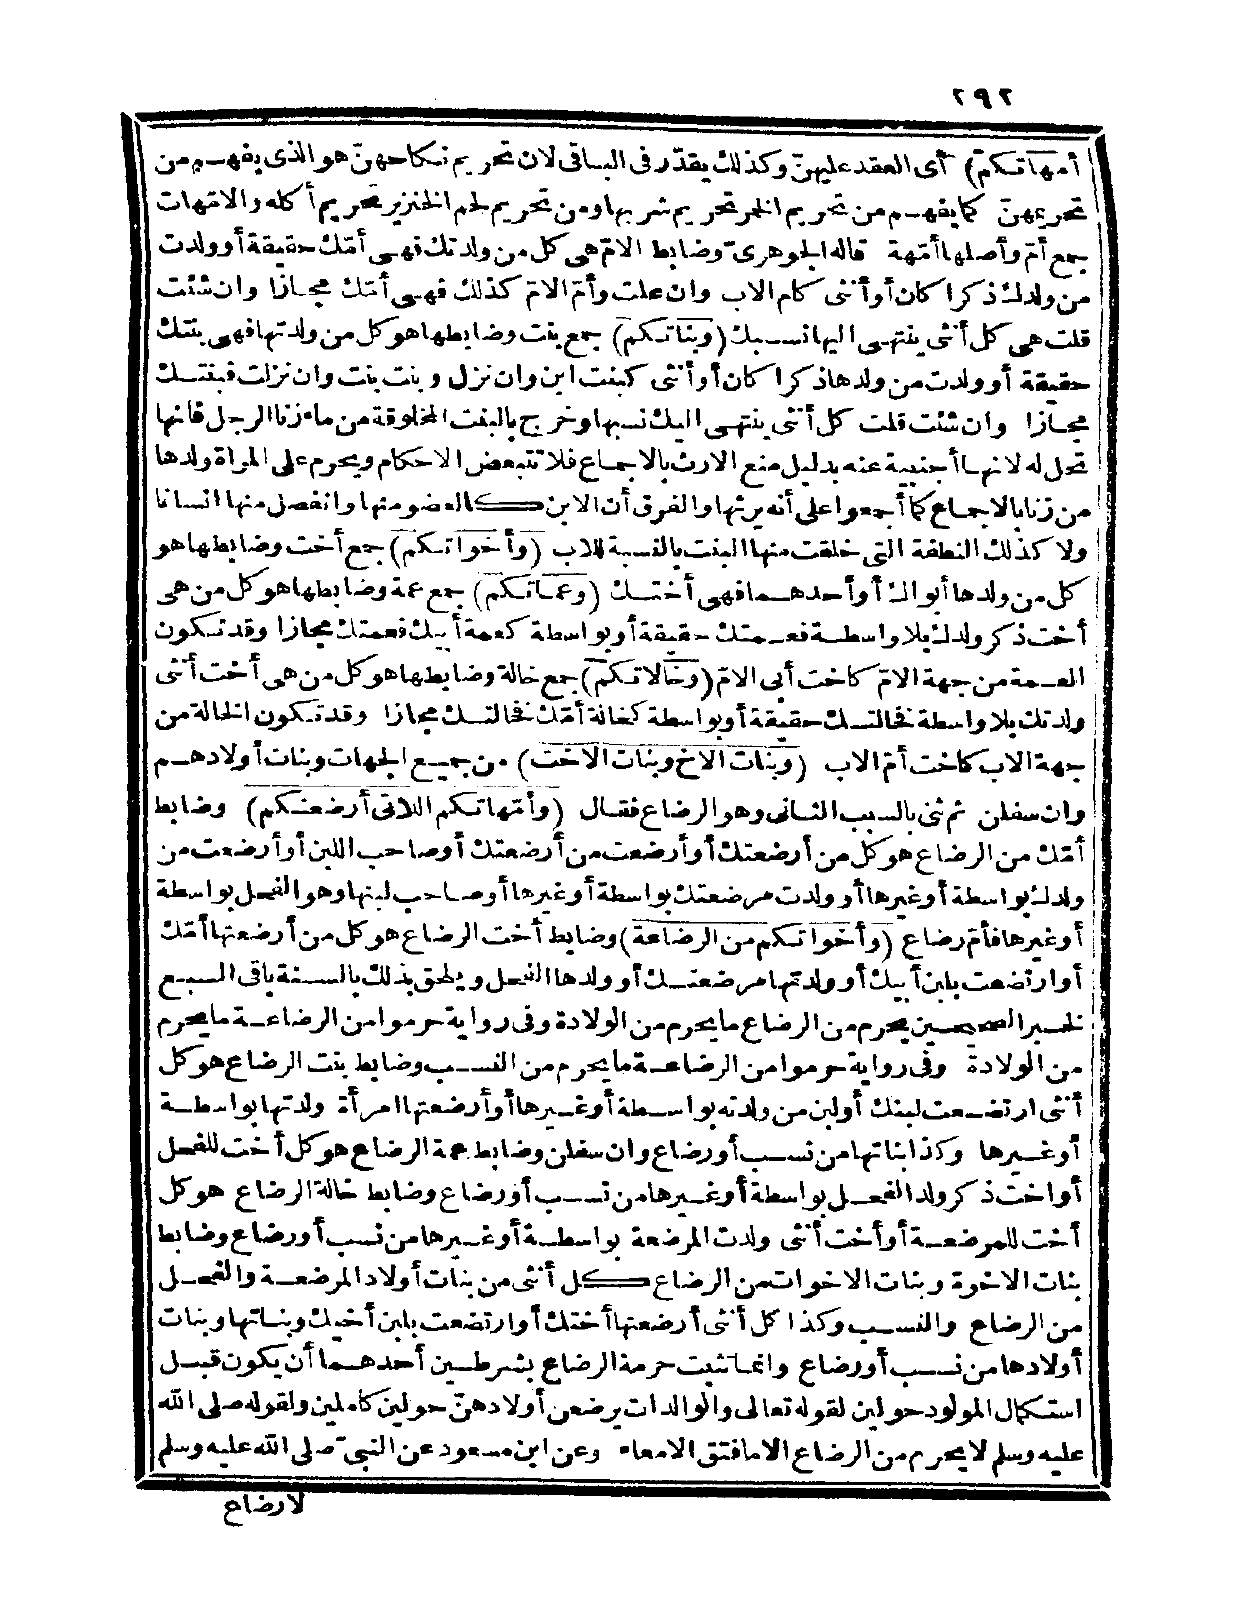 ٢٩٢
أمهاتكم) أى العقد عليهنّ وكذلك يقدّر فى الباقى لان تحريم نكاحهنّ هو الذى يفهم من
تحريمهنّ كما يفهم من تحريم الخمر تحريم شربها ومن تحريم لحم الخنزير تحريم أكله والامّهات
جمع أمّ وأصلها أمّهة قاله الجوهرىّ وضابط الامّ هى كل من ولدتك فهى أمّك حقيقة أو ولدت
من ولدك ذكرا كان أو أنثى كام الاب وان علت وأمّ الامّ كذلك فهى أمّك مجازا وان شئت
قلت هى كل أنثى ينتهى اليها نسبك (وبناتكم) جمع بنت وضابطها هو كل من ولدتها فهى بنتك
حقيقة أو ولدت من ولدها ذكرا كان أو أنثى كبنت ابن وان نزل وبنت بنت وان نزلت فبنتك
مجازا وان شئت قلت كل أنثى ينتهى اليك نسبها وخرج بالبنت المخلوقة من ماء زنا الرجل فانها
تحل له لانها أجنبية عنه بدليل منع الارث بالاجماع فلا تتبعض الاحكام ويحرم على المرأة ولدها
من زنا بالاجماع كما أجمعوا على أنه يرثها والفرق أن الابن كالعضو منها وانفصل منها انسانا
ولا كذلك النطفة التى خلقت منها البنت بالنسبة للاب (وأخواتكم) جمع أخت وضابطها هو
كل من ولدها أبواك أو أحدهما فهى أختك (وعماتكم) جمع عمة وضابطها هو كل من هى
أخت ذكر ولدك بلا واسطة فعمتك حقيقة أو بواسطة كعمة أبيك فعمتك مجازا وقد تكون
العمة من جهة الامّ كاخت أبى الامّ (وخالاتكم) جمع خالة وضابطها هو كل من هى أخت أنثى
ولدتك بلا واسطة فخالتك حقيقة أو بواسطة كخالة أمّك فخالتك مجازا وقد تكون الخالة من
جهة الاب كاخت أمّ الاب (وبنات الاخ وبنات الاخت) من جميع الجهات وبنات أولادهم
وان سفلن ثم ثنى بالسبب الثانى وهو الرضاع فقال (وأمّهاتكم اللاتى أرضعنكم) وضابط
أمّك من الرضاع هو كل من أرضعتك أو أرضعت من أرضعتك أو صاحب اللبن أو أرضعت من
ولدك بواسطة أو غيرها أو ولدت مرضعتك بواسطة أو غيرها أو صاحب لبنها وهو الفحل بواسطة
أو غيرها فأمّ رضاع (وأخواتكم من الرضاعة) وضابط أخت الرضاع هو كل من أرضعتها أمّك
أو ارتضعت بلبن أبيك أو ولدتها مرضعتك أو ولدها الفحل ويلحق بذلك بالسنة باقى السبع
لخبر الصحيحين يحرم من الرضاع ما يحرم من الولادة وفى رواية حرموا من الرضاعة ما يحرم
من الولادة وفى رواية حرموا من الرضاعة ما يحرم من النسب وضابط بنت الرضاع هو كل
أنثى ارتضعت لبنك أو لبن من ولدته بواسطة أو غيرها أو أرضعتها امرأة ولدتها بواسطة
أو غيرها وكذا بناتها من نسب أو رضاع وان سفلن وضابط عمة الرضاع هو كل أخت للفحل
أو اخت ذكر ولد الفحل بواسطة أو غيرها من نسب أو رضاع وضابط خالة الرضاع هو كل
أخت للمرضعة أو أخت أنثى ولدت المرضعة بواسطة أو غيرها من نسب أو رضاع وضابط
بنات الاخوة وبنات الاخوات من الرضاع كل أنثى من بنات أولاد المرضعة والفحل
من الرضاع والنسب وكذا كل أنثى أرضعتها أختك أو ارتضعت بلبن أخيك وبناتها وبنات
أولادها من نسب أو رضاع وانما تثبت حرمة الرضاع بشرطين أحدهما أن يكون قبل
استكمال المولود حولين لقوله تعالى والوالدات يرضعن أولادهنّ حولين كاملين ولقوله صلى الله
عليه وسلم لا يحرم من الرضاع الا ما فتق الامعاء وعن ابن مسعود عن النبىّ صلى الله عليه وسلم
لا رضاع